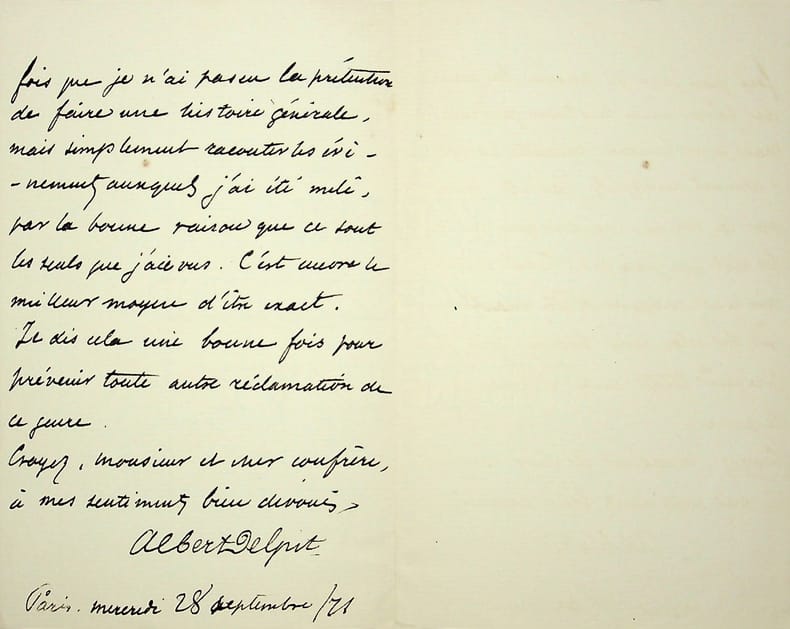 fois que je n'ai pas eu la prétention
de faire une histoire générale,
mais simplement raconter les évé-
-nements auxquels j'ai été mêlé,
par la bonne raison que ce sont
les seuls que j'aie vus. C'est encore le
meilleur moyen d'être exact.
Je dis cela une bonne fois pour
prévenir toute autre réclamation de
ce genre.
Croyez, monsieur et cher confrère,
à mes sentiments bien dévoués
Albert Delpit
Paris. mercredi 28 septembre /71